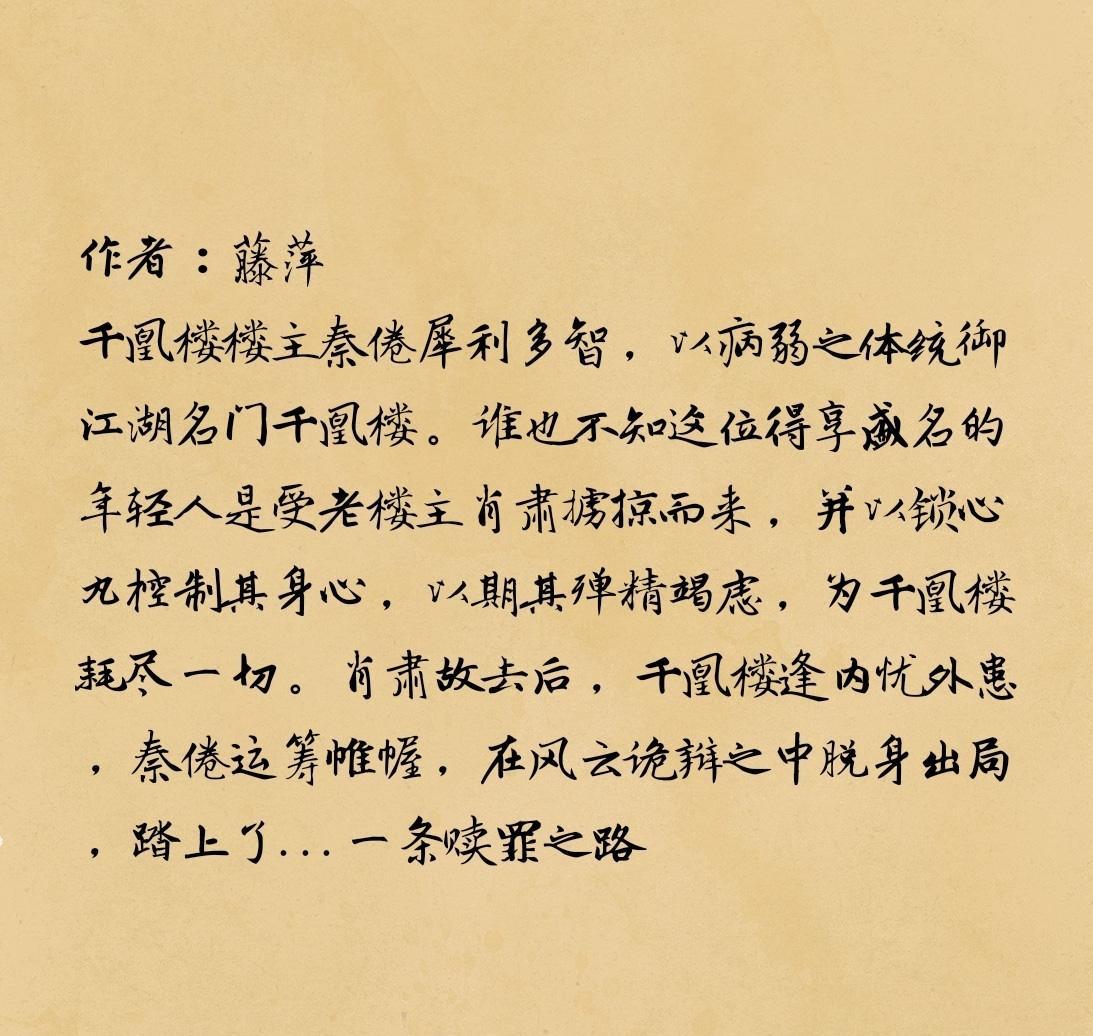 作者：藤萍
千凰楼楼主秦倦犀利多智，以病弱之体统御
江湖名门千凰楼。谁也不知这位得享盛名的
年轻人是受老楼主肖肃掳掠而来，并以锁心
九控制其身心，以期其殚精竭虑，为千凰楼
耗尽一切。肖肃故去后，千凰楼逢内忧外患
，秦倦运筹帷幄，在风云诡辩之中脱身出局
，踏上了...一条赎罪之路